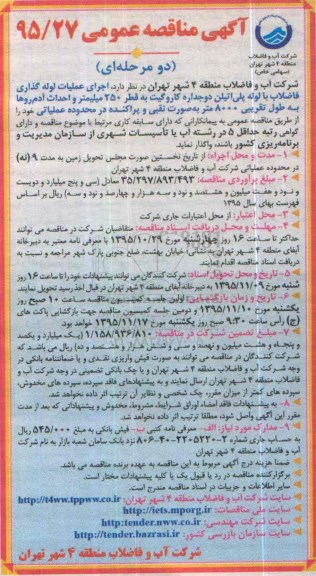 آگهی مناقصه عمومی ۹۵/۲۷
(دو مرحله‌ای)
شرکت آب و فاضلاب
منطقه ۴ شهر تهران
(سهامی خاص)
شرکت آب و فاضلاب منطقه ۴ شهر تهران در نظر دارد، اجرای عملیات لوله گذاری
فاضلاب با لوله پلی‌اتیلن دوجداره کاروگیت به قطر ۲۵۰ میلیمتر و احداث آدم‌روها
به طول تقریبی ۸۰۰۰ متر به‌صورت نقبی و پراکنده در محدوده عملیاتی خود را
از طریق مناقصه عمومی به پیمانکارانی که دارای سابقه کاری مرتبط با موضوع مناقصه و دارای
گواهی رتبه حداقل ۵ در رشته آب یا تأسیسات شهری از سازمان مدیریت و
برنامه‌ریزی کشور باشند، واگذار نماید.
۱- مدت و محل اجراء: از تاریخ نخستین صورت مجلس تحویل زمین به مدت ۹ (نه)
در محدوده عملیاتی شرکت آب و فاضلاب منطقه ۴ شهر تهران
۲- مبلغ برآوردی مناقصه: ۳۵/۲۹۷/۸۹۳/۴۹۳ معادل (سی و پنج میلیارد و دویست
و نود و هفت میلیون و هشتصد و نود و سه هزار و چهارصد و نود و سه) ریال بر اساس
فهرست بهای سال ۱۳۹۵
۳- محل اعتبار: از محل اعتبارات جاری شرکت
۴- مهلت و محل دریافت اسناد مناقصه: متقاضیان شرکت در مناقصه می توانند
حداکثر تا ساعت ۱۶ روز چهارشنبه مورخ ۱۳۹۵/۱۰/۲۹ با معرفی نامه معتبر به دبیرخانه
آبفای منطقه ۴ شهر تهران به نشانی: خیابان بهشت، ضلع جنوبی پارک شهر مراجعه و نسبت به
دریافت اسناد مناقصه اقدام نمایند.
۵- تاریخ و محل تحویل اسناد: شرکت کنندگان می توانند پیشنهادات خود را تا ساعت ۱۶ روز
شنبه مورخ ۱۳۹۵/۱۱/۰۹ به دبیرخانه آبفای منطقه ۴ شهر تهران در قبال اخذ رسید تحویل نمایند.
۶- تاریخ و زمان بازگشایی: اولین جلسه کمیسیون مناقصه ساعت ۱۰ صبح روز
یکشنبه مورخ ۱۳۹۵/۱۱/۱۰ و دومین جلسه کمیسیون مناقصه جهت بازگشایی پاکت های
(ج) رأس ساعت ۹:۳۰ صبح روز یکشنبه مورخ ۱۳۹۵/۱۱/۱۷ خواهد بود.
۷- مبلغ تضمین شرکت در مناقصه: (یک میلیارد و یکصد
شرکت کنندگان در مناقصه می توانند به صورت فیش واریزی نقدی و یا ضمانتنامه بانکی در
وجه شرکت آب و فاضلاب منطقه ۴ شهر تهران و یا چک بانکی تضمینی در وجه شرکت آب و
فاضلاب منطقه ۴ شهر تهران ارسال نمایند و به پیشنهادهای فاقد سپرده، سپرده های مخدوش،
سپرده های کمتر از میزان مقرر، چک شخصی و نظایر آن ترتیب اثر داده نخواهد شد.
۸- به پیشنهادات فاقد امضاء اوراق شرایط، مشروط، مخدوش و پیشنهاداتی که بعد از مدت
مقرر این آگهی واصل شود، مطلقا ترتیب اثر داده نخواهد شد.
۹- مدارک مورد نیاز: الف- معرفی نامه کتبی ب- فیش بانکی به مبلغ ۵۴۵/۰۰۰ ریال
به حساب جاری شماره ۲-۲۲۰۵۲۲۰-۴۰-۸۰۶ نزد بانک سامان شعبه بازار به نام شرکت
آب و فاضلاب منطقه ۴ شهر تهران.
ضمنا هزینه درج آگهی مربوط به این مناقصه به عهده برنده مناقصه می باشد.
برگزارکننده مناقصه در رد یا قبول یک یا کلیه پیشنهادات مختار است.
سایر اطلاعات و جزییات در اسناد مناقصه مندرج است.
سایت شرکت آب و فاضلاب منطقه ۴ شهر تهران: http://t4ww.tppww.co.ir
سایت ملی مناقصات: http://iets.mporg.ir
سایت شرکت مهندسی: http:tender.nww.co.ir
سایت سازمان بازرسی کشور: http://tender.bazrasi.ir
شرکت آب و فاضلاب منطقه ۴ شهر تهران